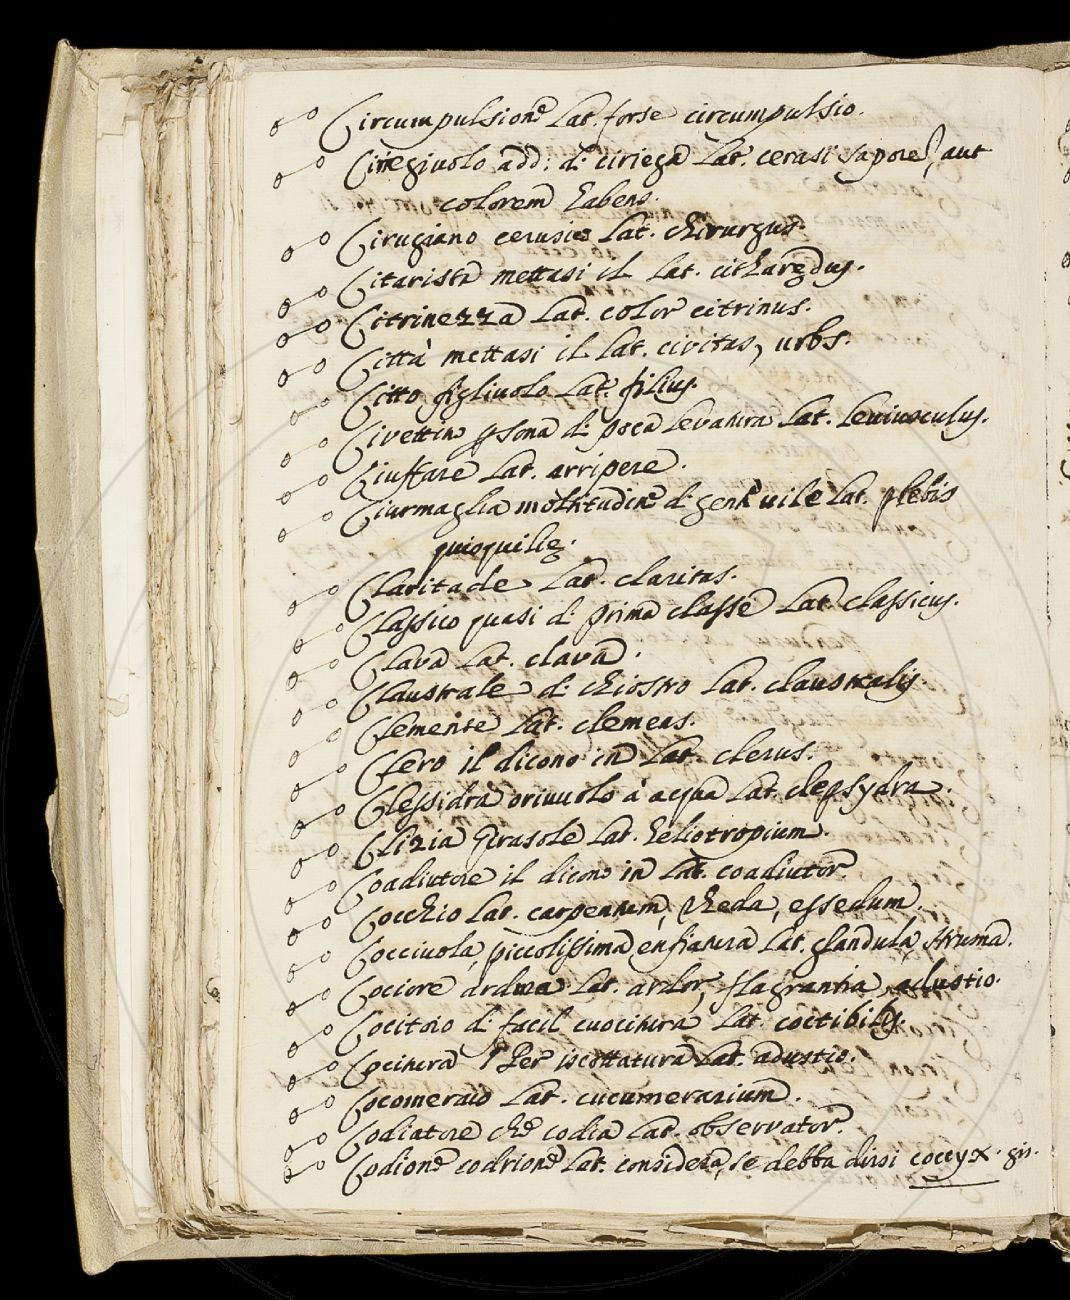 Circumpulsione Lat. forse circumpulsio.
Ciriegiuolo add: di ciriegia Lat. cerasi sapore, aut
colorem habens.
Cirugiano cerusico Lat. chirurgus.
Citarista mettasi il Lat. citharędus.
Citrinezza Lat. color citrinus.
Città mettasi il Lat. civitas, urbs.
Citto figliuolo Lat. filius.
Civettino psona di poca levatura Lat. leviusculus.
Ciuffare Lat. arripere.
Ciurmaglia moltitudine di gente vile Lat. plebis
quisquilię.
Claritade Lat. claritas.
Classico quasi di prima classe Lat. classicus.
Clava Lat. clava.
Claustrale di chiostro Lat. claustralis.
Clemente Lat. clemens.
Clero il dicono in Lat. clerus.
Clessidra oriuolo à acqua Lat. clepsydra.
Clizia Girasole Lat. heliotropium.
Coadiutore il dicono in Lat. coadiutor.
Cocchio Lat. carpentum, rheda, essedum.
Cocciuola, piccolissima enfiatura Lat. glandula, struma.
Cociore Lat. ardor, flagrantia, adustio.
Cocitoio di facil cuocitura Lat. coctibilis.
Cocitura Per iscottatura Lat. adustio.
Cocomeraio Lat. cucumerarium.
Codiatore che codia Lat. observator.
Codione codrione Lat. considera, se debba dirsi coccyx. gis.